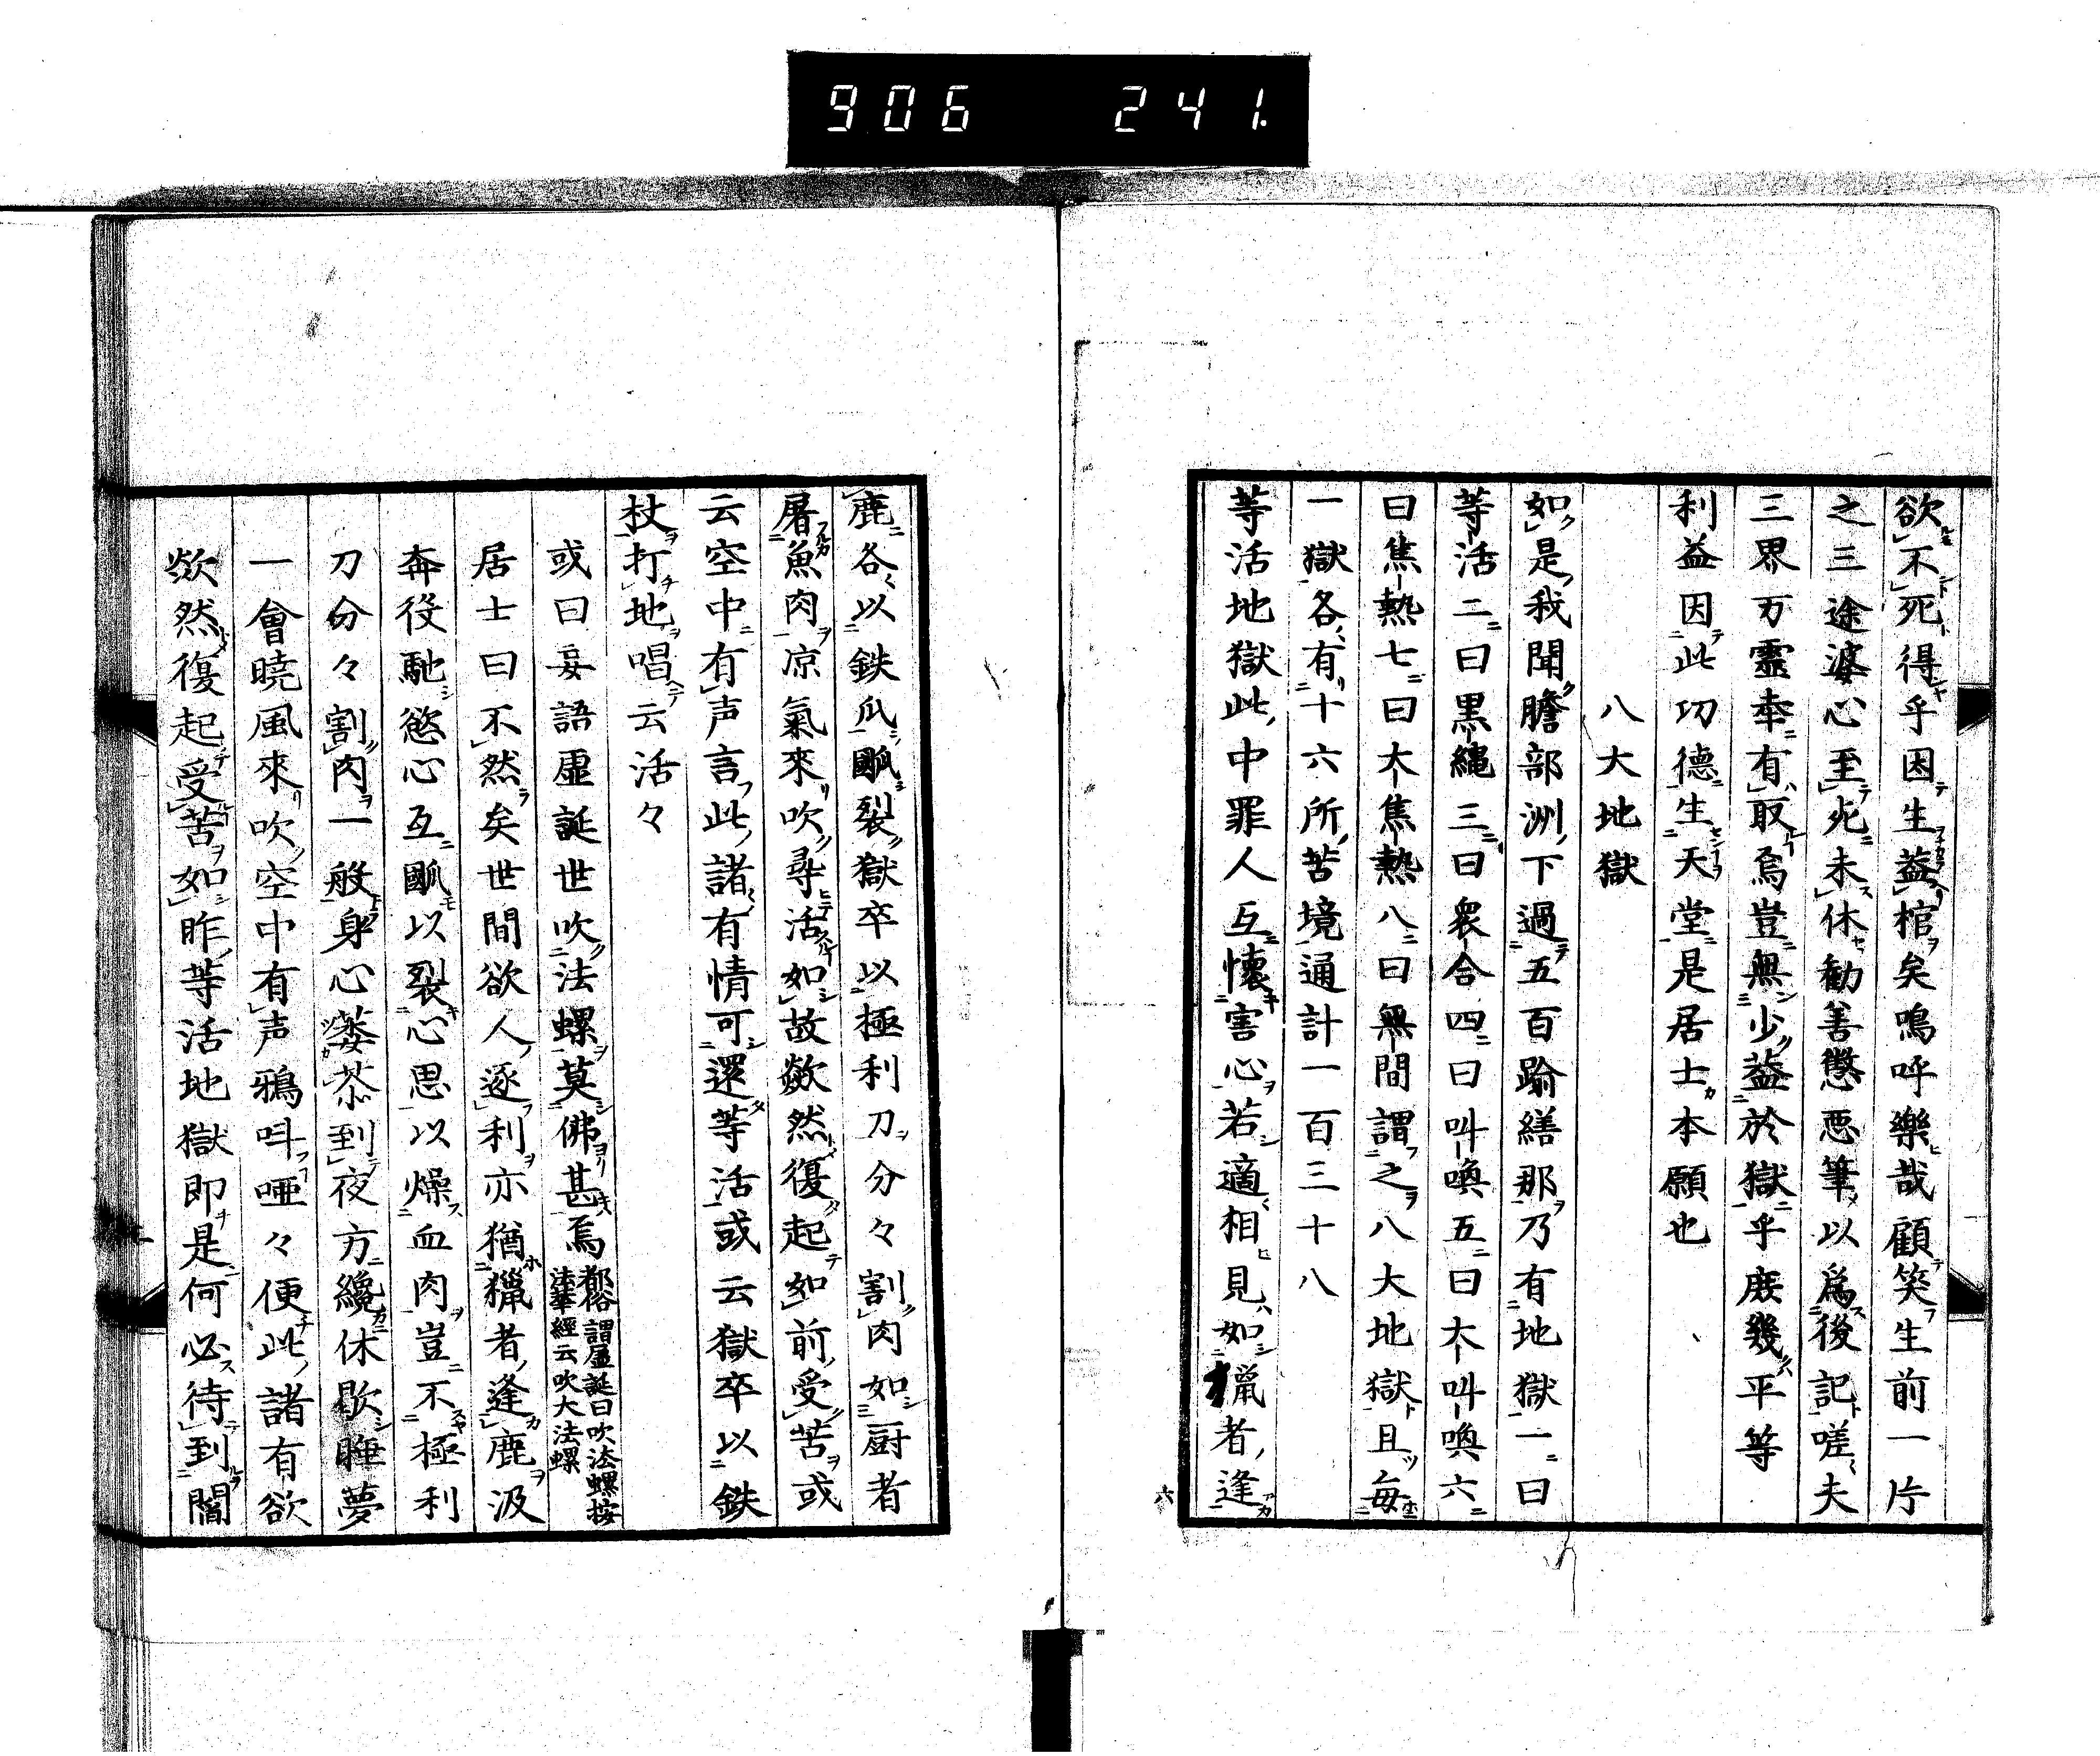 906 241.
欲不死得乎因生益棺矣嗚呼樂哉顧笑生前一片
之三途婆心至死未休勧善懲悪筆以為後記嗟夫
三界万霊率有取焉豈無少益於獄乎庻幾平等
利益因此切德生天堂是居士本願也
八大地獄
如是我聞贍部洲下過五百踰繕那乃有地獄一曰
等活二曰黒縄三曰衆合四曰叫喚五曰大叫喚六
曰焦熱七曰大焦熱八曰無間謂之八大地獄且毎
一獄各有十六所苦境通計一百三十八
等活地獄此中罪人互懐害心若適相見如獵者逢
六
鹿各以鉄爪㓟裂獄卒以極利刀分々割肉如厨者
屠魚肉凉氣來吹尋活如故欻然復起如前受苦或
云空中有声言此諸有情可還等活或云獄卒以鉄
杖打地唱云活々
或曰妄語虚誕世吹法螺莫佛甚焉都俗謂虚誕曰吹法螺按法華經云吹大法螺
居士曰不然矣世間欲人逐利亦猶獵者逢鹿汲
奔役馳慾心互㓟以裂心思以燥血肉豈不極利
刀分々割肉一般身心蒌苶到夜方纔休歇睡夢
一會曉風來吹空中有声鴉呌唖々便此諸有欲
欻然復起受苦如昨等活地獄即是何必待到閻